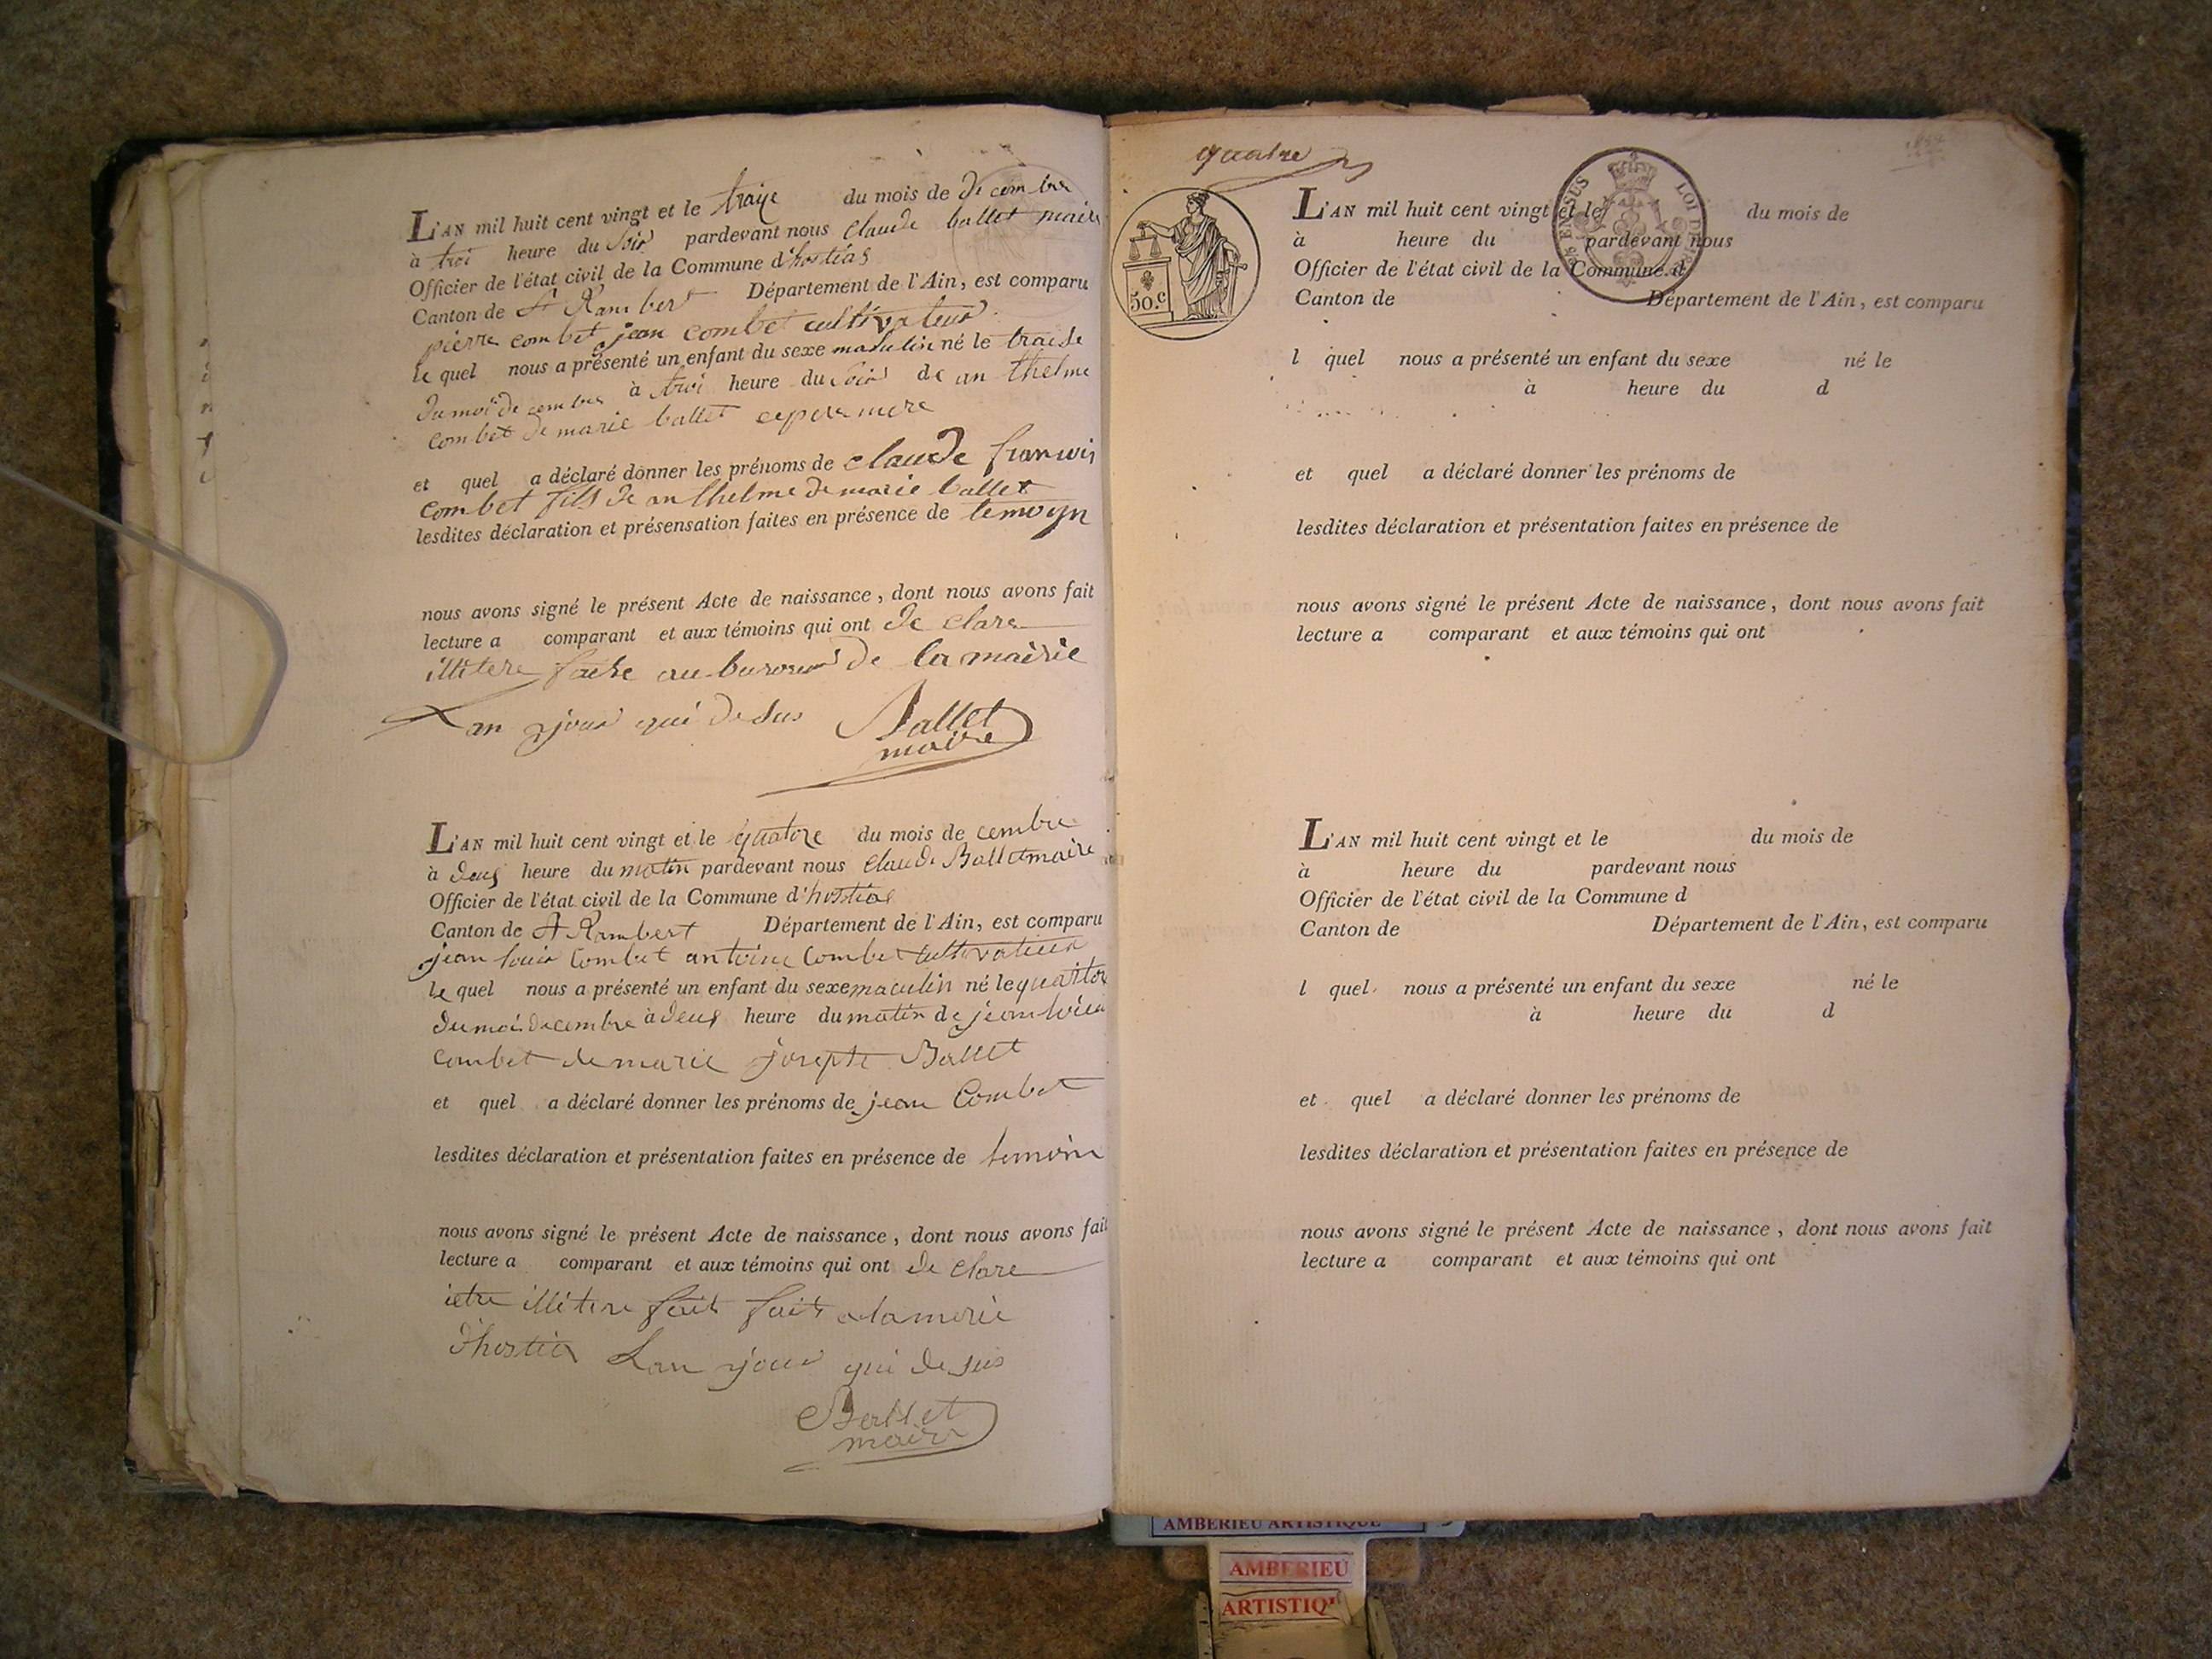 L'AN mil huit cent vingt et le traize du mois de decembre
à troi heure du soir pardevant nous claude ballet maire
Officier de l'état civil de la Commune d'hostias
Canton de St Rambert Département de l'Ain, est comparu
pierre combet jean combet cultivateur
le quel nous a présenté un enfant du sexe masculin né le
du moi decembre à troi heure du soir de an thelme
combet de marie ballet mere
et quel a déclaré donner les prénoms de claude francois
combet fils de an thelme de marie ballet
lesdites déclaration et présensation faites en présence de temoyn
nous avons signé le présent Acte de naissance, dont nous avons fait
lecture a comparant et aux témoins qui ont de clare
illitere faite au de la mairie
Lan jour qui de sus Ballet
maire
L'AN mil huit cent vingt et le quatorze du mois de cembre
à deus heure du matin pardevant nous claude Ballet maire
Officier de l'état civil de la Commune d'hostias
Canton de St Rambert Département de l'Ain, est comparu
jean louis Combet antoine Combet cultivateur
le quel nous a présenté un enfant du sexe maculin né le quaitor
du moi decembre à deus heure du matin de jean louis
combet de marie josepte Ballet
et quel a déclaré donner les prénoms de jean Combet
lesdites déclaration et présentation faites en présence de temoin
nous avons signé le présent Acte de naissance, dont nous avons fait
lecture a comparant et aux témoins qui ont de clare
ietre illitere fait fait a la merie
d'hostia Lan jour qui de sus
Ballet
maire
quatre
50.c
L'AN mil huit cent vingt et le du mois de
à heure du pardevant nous
Officier de l'état civil de la Commune d
Canton de Département de l'Ain, est comparu
l quel nous a présenté un enfant du sexe né le
à heure du d
et quel a déclaré donner les prénoms de
lesdites déclaration et présentation faites en présence de
nous avons signé le présent Acte de naissance, dont nous avons fait
lecture a comparant et aux témoins qui ont
L'AN mil huit cent vingt et le du mois de
à heure du pardevant nous
Officier de l'état civil de la Commune d
Canton de Département de l'Ain, est comparu
l quel nous a présenté un enfant du sexe né le
à heure du d
et quel a déclaré donner les prénoms de
lesdites déclaration et présentation faites en présence de
nous avons signé le présent Acte de naissance, dont nous avons fait
lecture a comparant et aux témoins qui ont
AMBERIEU ARTISTIQUE
AMBERIEU
ARTISTIQ